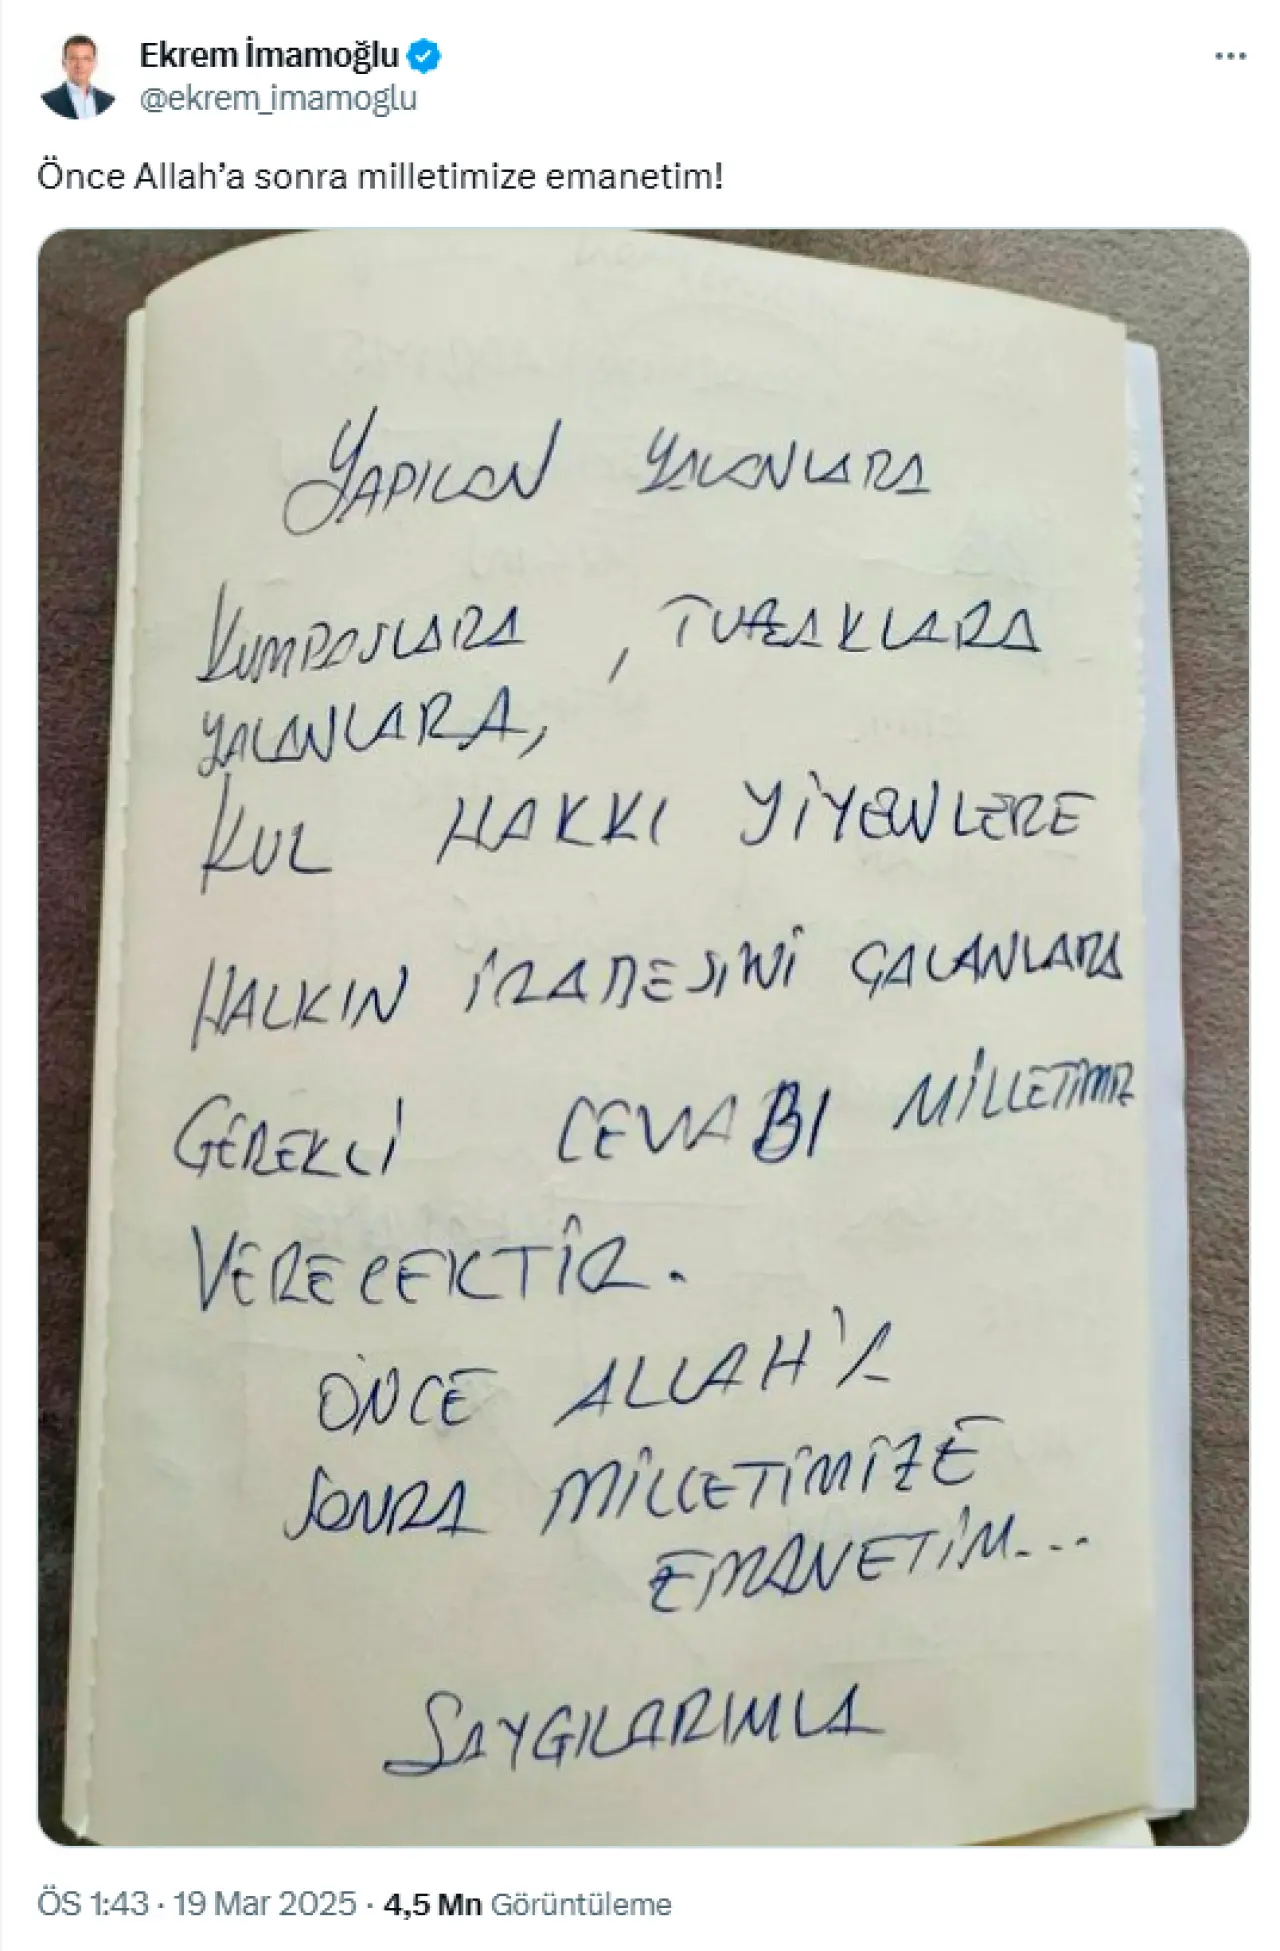 Ekrem İmamoğlu
@ekrem_imamoglu
Önce Allah’a sonra milletimize emanetim!
YAPILAN YALANLARA
KUMPASLARA , TUZAKLARA
YALANLARA,
KUL HAKKI YİYENLERE
HALKIN İRADESİNİ ÇALANLARA
GEREKLİ CEVABI MİLLETİMİZ
VERECEKTİR.
ÖNCE ALLAH'A
SONRA MİLLETİMİZE
EMANETİM...
SAYGILARIMLA
ÖS 1:43 · 19 Mar 2025 · 4,5 Mn Görüntüleme